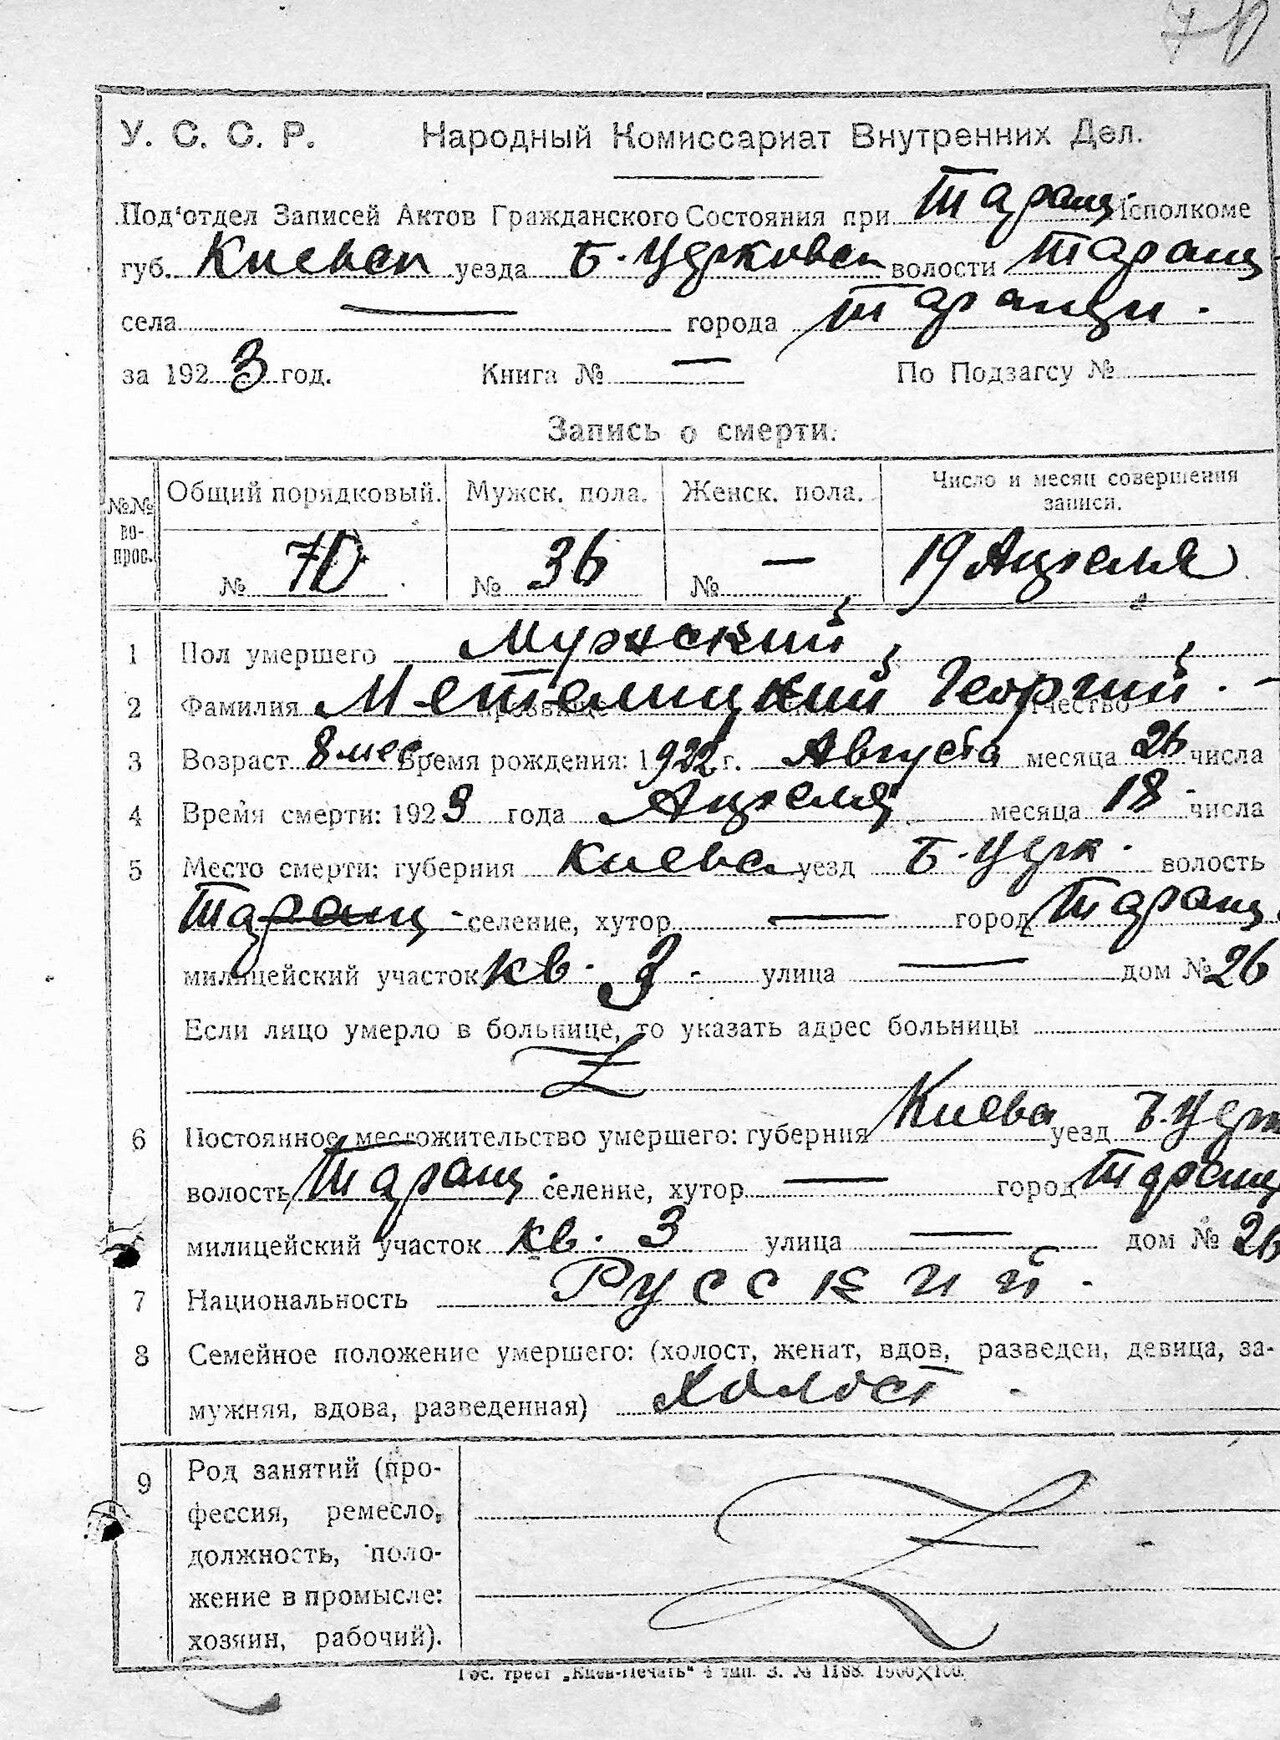 70
У. С. С. Р. Народный Комиссариат Внутренних Дел.
Под'отдел Записей Актов Гражданского Состояния при Таращ Исполкоме
губ. Киевск уезда Б. Церковск волости Таращ
села — города Таращи.
за 1923 год. Книга № — По Подзагсу №
Запись о смерти.
№№ вопрос. Общий порядковый. Мужск. пола. Женск. пола. Число и месяц совершения записи.
№ 70 № 36 № — 19 Апреля
1 Пол умершего Мужский
2 Фамилия Метелицкий Георгий. —
3 Возраст 8 мес Время рождения: 1922 г. Августа месяца 26 числа
4 Время смерти: 1923 года Апреля месяца 18 числа
5 Место смерти: губерния Киевс уезд Б. Церк. волость
Таращ - селение, хутор — город Таращ
милицейский участок кв. 3. улица — дом № 26
Если лицо умерло в больнице, то указать адрес больницы
Z
6 Постоянное местожительство умершего: губерния Киевс уезд Б. Церк
волость Таращ. селение, хутор — город Таращ
милицейский участок кв. 3 улица — дом № 26
7 Национальность Русский.
8 Семейное положение умершего: (холост, женат, вдов, разведен, девица, за-
мужняя, вдова, разведенная) Холост.
9 Род занятий (про-
фессия, ремесло,
должность, поло-
жение в промысле:
хозяин, рабочий).
Z
Гос. трест „Киев-Печать“ 4 тип. З. № 1188. 1900X100.